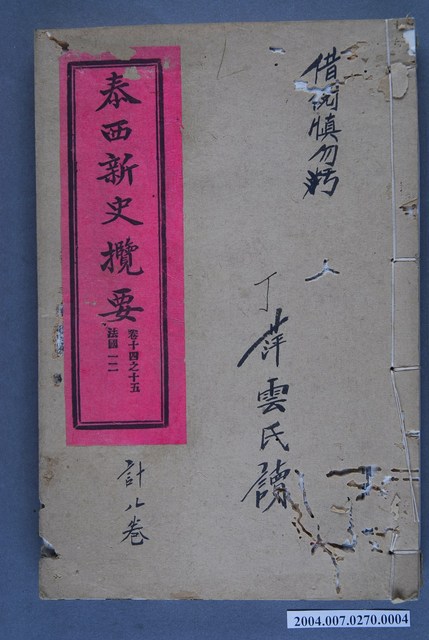 借汝慎勿污
丁萍雲氏讀
泰西新史攬要
卷十四之十五
法國一二
計八卷
2004.007.0270.0004